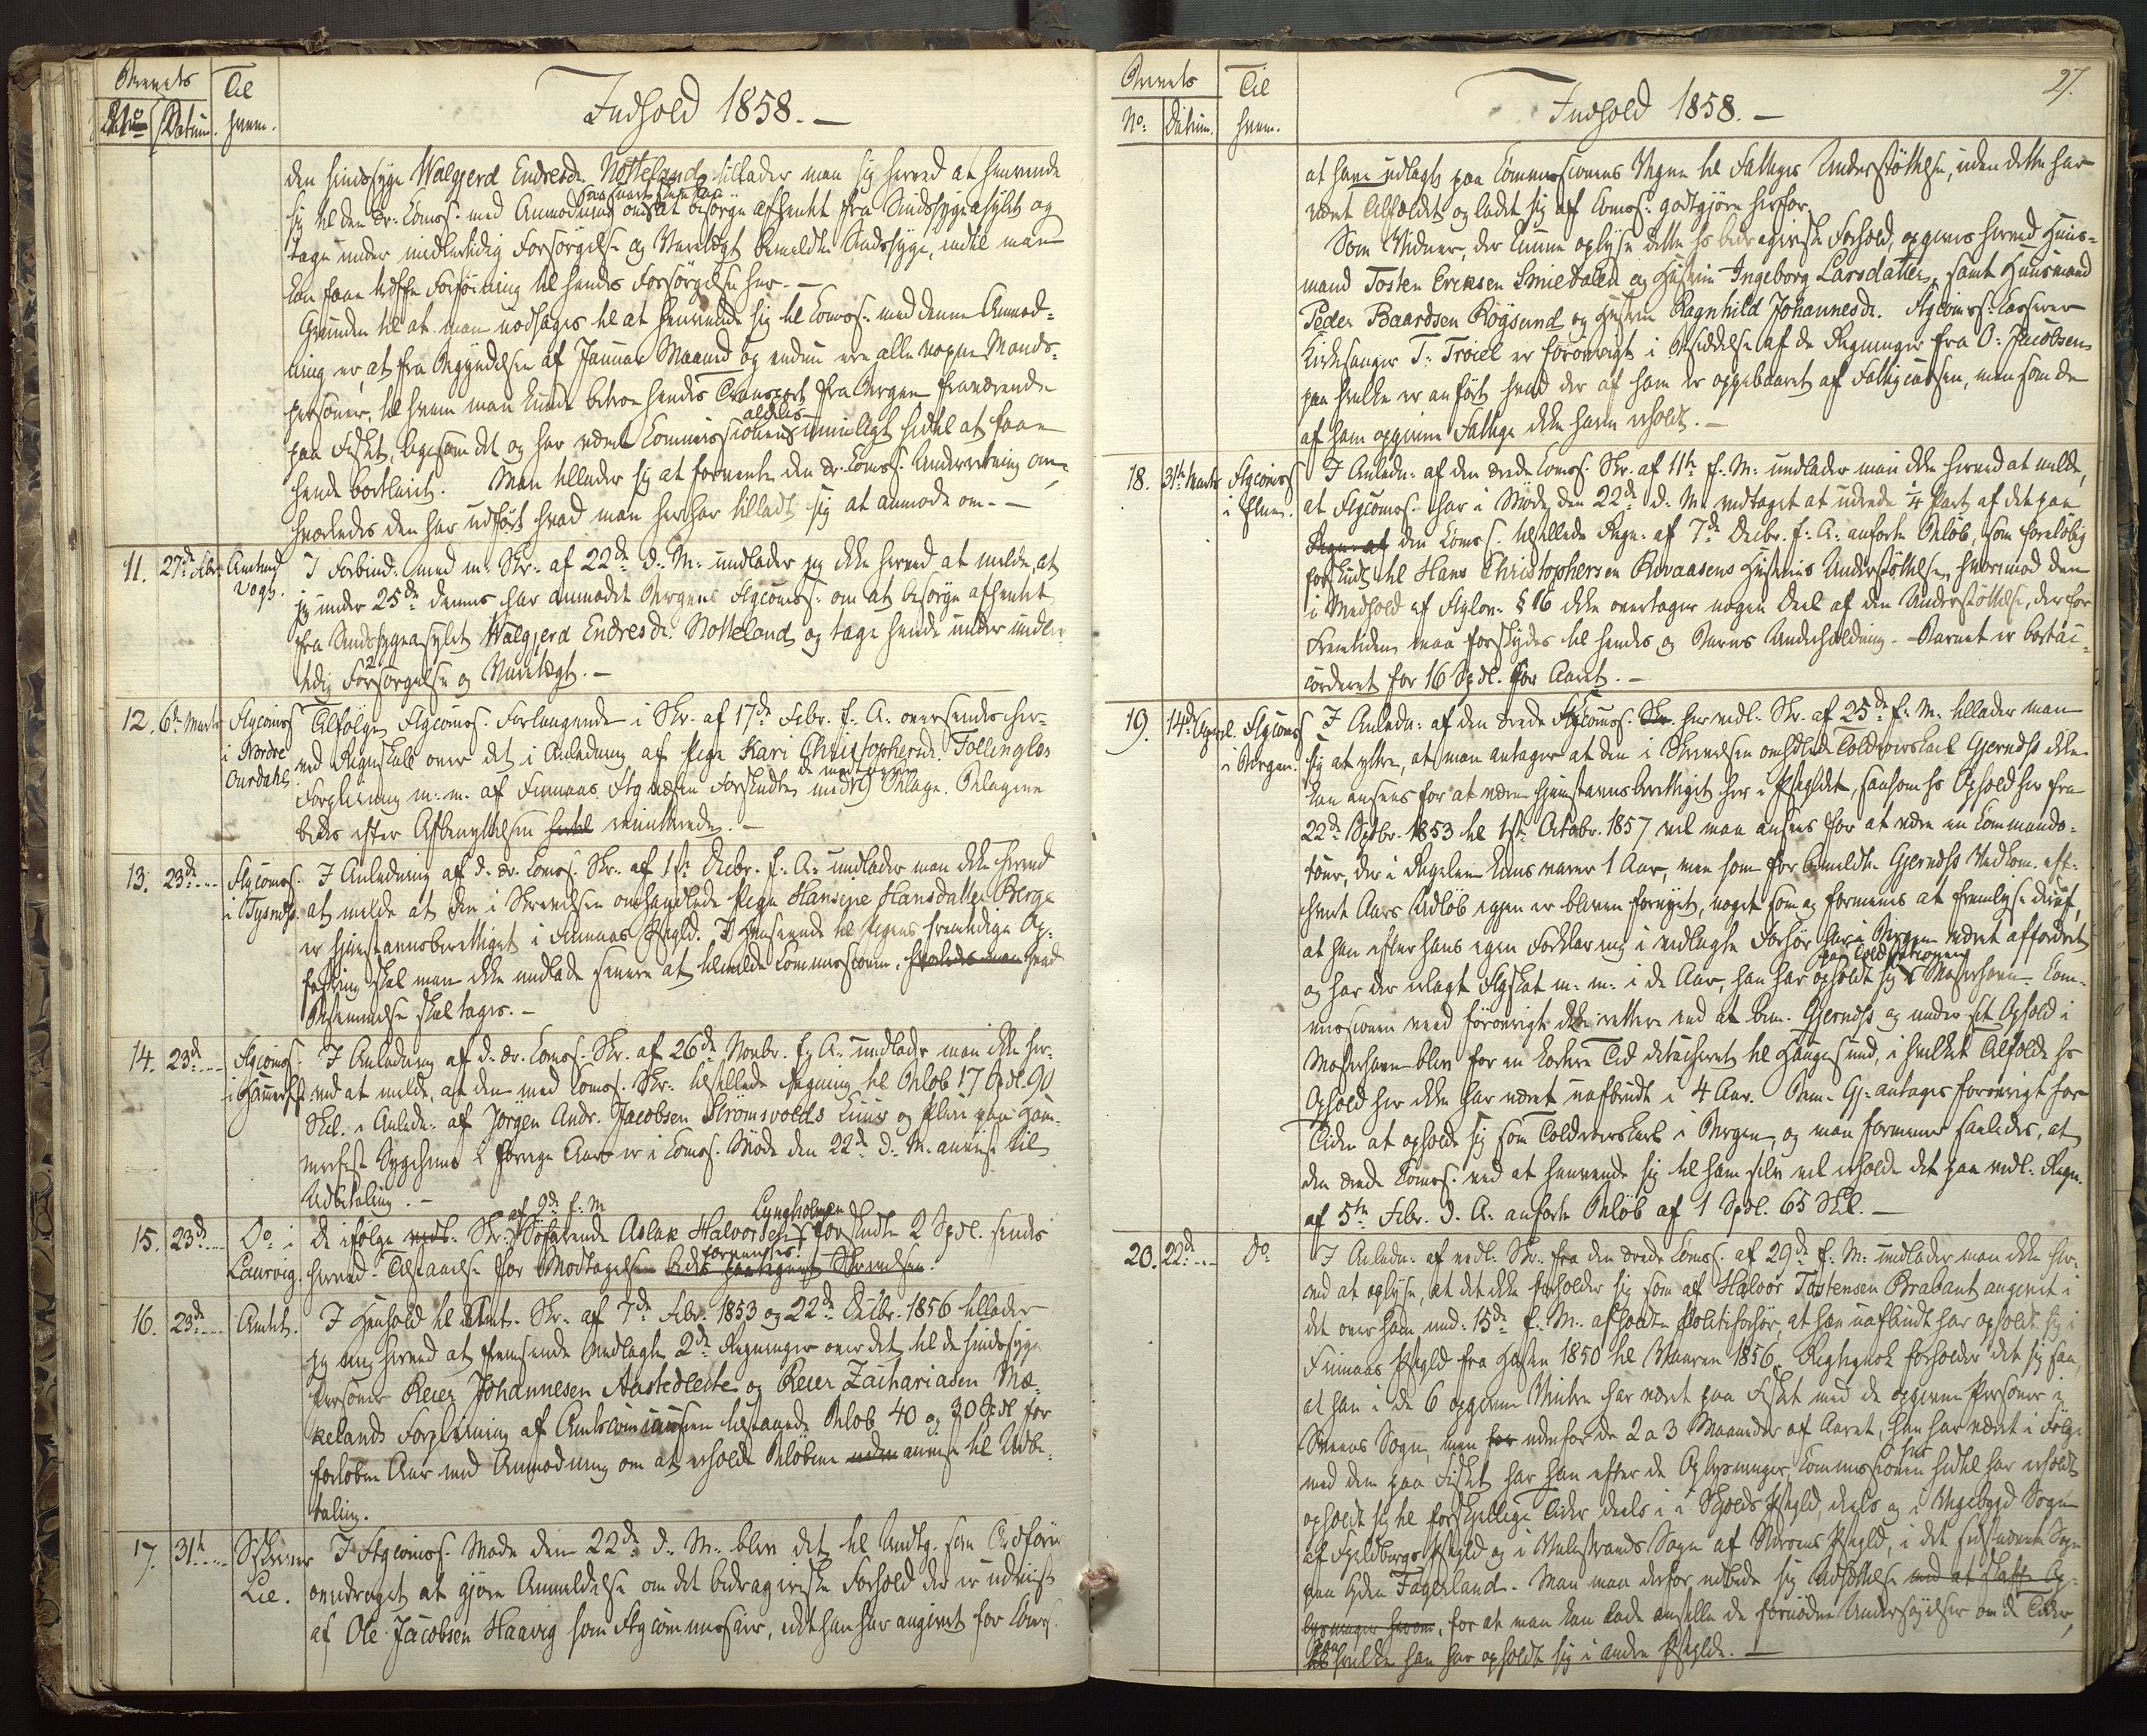 Brevets
Til
hvem.
No Datum.
Indhold 1858. —
den sindssyge Walgjerd Endresdr. Notteland tillader man sig herved at henvende
sig til den ær. Comss. med Anmodning om at besørge afhentet fra Sindssygeasylet og
tage under midlertidig Forsørgelse og Varetægt bemeldte Sindssyge, indtil man
kan faae truffe Forføining til hendes Forsørgelse her. —
Grunden til at man nødsages til at henvende sig til Comss. med denne Anmod-
ning er, at fra Begyndelsen af Januar Maaned og endnu ere alle voxne Mands-
personer, til hvem man kunde betroe hendes Transport fra Bergen fraværende
paa Fisket, ligesom det og har været Commissionen aldeles umuligt hidtil at faae
hende bortleiet. Man tillader sig at forvente den ær. Comss. Underretning om
hvorledes den har udført hvad man her har tilladt sig at anmode om. —
11. 27de Febr. Amtmd Vogt.
I Forbind. med m. Skr. af 22de d. M. undlader jeg ikke herved at melde, at
jeg under 25de dennes har anmodet Bergens Ftgcomss. om at besørge afhentet
fra Sindssygeasylet Walgjerd Endresdr. Notteland og tage hende under midler-
tidig Forsørgelse og Varetægt. —
12. 6te Marts Ftgcomss i Nordre Ourdahl
Tilfølge Ftgcomss. Forlangende i Skr. af 17de Febr. d. A. oversendes her-
ved Regnskab over det i Anledning af Pige Kari Christophersdr. Tollinglas
Forpleining m. m. af Finnaas Ftgvæsen Forskudte med 9 Bilage. Bilagene
bedes efter Afbenyttelsen remitterede. —
13. 23de — Ftgcomss. i Tysnæs.
I Anledning af d. ær. Comss. Skr. af 1ste Decbr. f. A. undlader man ikke herved
at melde at den i Skrivelsen omhandlede Pige Hansine Hansdatter Berge
er hjemstavnsberettiget i Finnaas Prgld. I Henseende til Pigens fremtidige Op-
fostring skal man ikke undlade senere at tilmelde Commissionen, hvad
Bestemmelse skal tages. —
14. 23de — Ftgcomss. i Hammerfest
I Anledning af d. ær. Comss. Skr. af 26de Novbr. f. A. undlader man ikke her-
ved at melde, at den med Comss. Skr. tilstillede Regning til Beløb 17 Spdl. 90
Skl. i Anledn. af Jørgen Andr. Jacobsen Strømsvolds Cuur og Pleie paa Ham-
merfest Sygehuus i forrige Aar er i Comss. Møde den 22de d. M. anviist til
Udbetaling. —
15. 23de — Do i Laurvig.
De ifølge Skr. af 9de f. M. Søfarende Aslak Halvorsen Lyngholmen forskudte 2 Spdl. sendes
herved. Tilstaaelse for Modtagelsen fornødiges.
16. 23de — Amtet.
I Henhold til Amt. Skr. af 7de Febr. 1853 og 22de Decbr. 1856 tillader
jeg mig herved at fremsende vedlagte 2de Regninger over det til de sindssyge
Personer Reier Johannesen Aastedleite og Reier Zachariasen Mæ-
kelands Forpleining af Amtscommunen tilstaaede Beløb 40 og 30 Spdl for
forløbne Aar med Anmodning om at erholde Beløbene anviist til Udbe-
taling.
17. 31te — Sskriver Lie.
I Ftgcomss. Møde den 22de d. M. blev det til Undtg. som Ordfører
overdraget at gjøre Anmeldelse om det bedragerske Forhold der er udviist
af Ole Jacobsen Haavig som Ftgcommissair, idet han har angivet for Comss.
Brevets
Til
hvem.
No: Datum.
Indhold 1858. —
27.
at have udlagt paa Commissionens Vegne til Fattiges Understøttelse, uden dette har
været Tilfældet og ladet sig af Comss. godtgjøre herfor.
Som Vidner, der kunne oplyse dette hs bedragerske Forhold, opgives herved Huus-
mand Tosten Eriksen Smiedalen og Hustrue Ingeborg Larsdatter, samt Huusmand
Peder Baardsen Røgsund og Hustrue Ragnhild Johannesdr. Ftgcomss. Casserer
Kirkesanger T. Troiel er forøvrigt i Besiddelse af de Regninger fra O. Jacobsen
paa hvilke er anført hvad der af ham er oppebaaret af Fattigcassen, men som de
af ham opgivne Fattige ikke have erholdt. —
18. 31te Marts Ftgcomss i Etne.
I Anledn. af den ærede Comss. Skr. af 11te f. M. undlader man ikke herved at melde,
at Ftgcomss. har i Møde den 22de d. M. vedtaget at udrede 1/4 Part af det paa
den Comss. tilstillede Regn. af 7de Decbr. f. A. anførte Beløb, som foreløbig
forskudt til Hans Christophersen Rovaasens Hustrues Understøttelse, hvorimod den
i Medhold af Ftglov. § 16 ikke overtager nogen Deel af den Understøttelse, der for
Fremtiden maa forskydes til hendes og Barnets Underholdning. — Barnet er bortac-
corderet for 16 Spdl. for Aaret. —
19. 14de April. Ftgcomss i Bergen.
I Anledn. af den ærede Ftgcomss. hervedl. Skr. af 25de f. M. tillader man
sig at yttre, at man antager at den i Skrivelsen omhdlede Toldroerskarl Gjerndss ikke
kan ansees for at være hjemstavnsberettiget her i Prgldet, saasom hs Ophold her fra
22de Septbr. 1853 til 1ste Octobr. 1857 vel maa ansees for at være en Commando-
tour, der i Regelen kuns varer 1 Aar, men som for bemeldte Gjerndss Vedkom. eft-
erhvert Aars Udløb igjen er bleven fornyet, noget som og formenes at fremlyse deraf,
at han efter hans egen Forklaring i vedlagte Forhør har i Bergen været affordret
og har der erlagt Ftgskat m. m. i de Aar, han har opholdt sig paa Toldstationen i Mosterhavn. Com-
missionen veed forøvrigt ikke rettere end at bem. Gjerndss og under sit Ophold i
Mosterhavn blev for en kortere Tid detacheret til Haugesund, i hvilket Tilfælde hs
Ophold her ikke har været uafbrudt i 4 Aar. Bem. Gj. antages forøvrigt for
Tiden at opholde sig som Toldroerskarl i Bergen, og man formener saaledes, at
den ærede Comss. ved at henvende sig til ham selv vil erholde det paa vedl. Regn.
af 5te Febr. d. A. anførte Beløb af 1 Spdl. 65 Skl. —
20. 22de — Do
I Anledn. af vedl. Skr. fra den ærede Comss. af 29de f. M. undlader man ikke her-
ved at oplyse, at det ikke forholder sig som af Halvor Tostensen Brabant angivet i
det over ham und. 15de f. M. afholdte Politiforhør, at han uafbrudt har opholdt sig i
Finnaas Prgld fra Høsten 1850 til Vaaren 1856. Rigtignok forholder det sig saa,
at han i de 6 opgivne Vintre har været paa Fisket med de opgivne Personer i
Bremnes Sogn, men udenfor de 2 a 3 Maaneder af Aaret, han har været i Følge
med dem paa Fisket har han efter de Oplysninger, Commissionen hidtil har erholdt
opholdt sig til forskjellige Tider deels i Skjolds Prgld, deels og i Ølgebygd Sogn
af Fjeldbergs Prgld og i Valestrands Sogn af Størens Prgld, i det sidstnævnte Sogn
paa Gden Fagerland. Man maa derfor udbede sig Udsættelse med at skaffe Op-
lysninger herom, for at man kan lade anstille de fornødne Undersøgelser om de Tider,
hvilke han har opholdt sig i andre Prglde. —